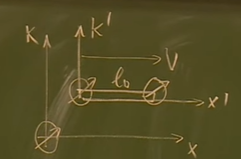 K K'
V
l₀
x'
x